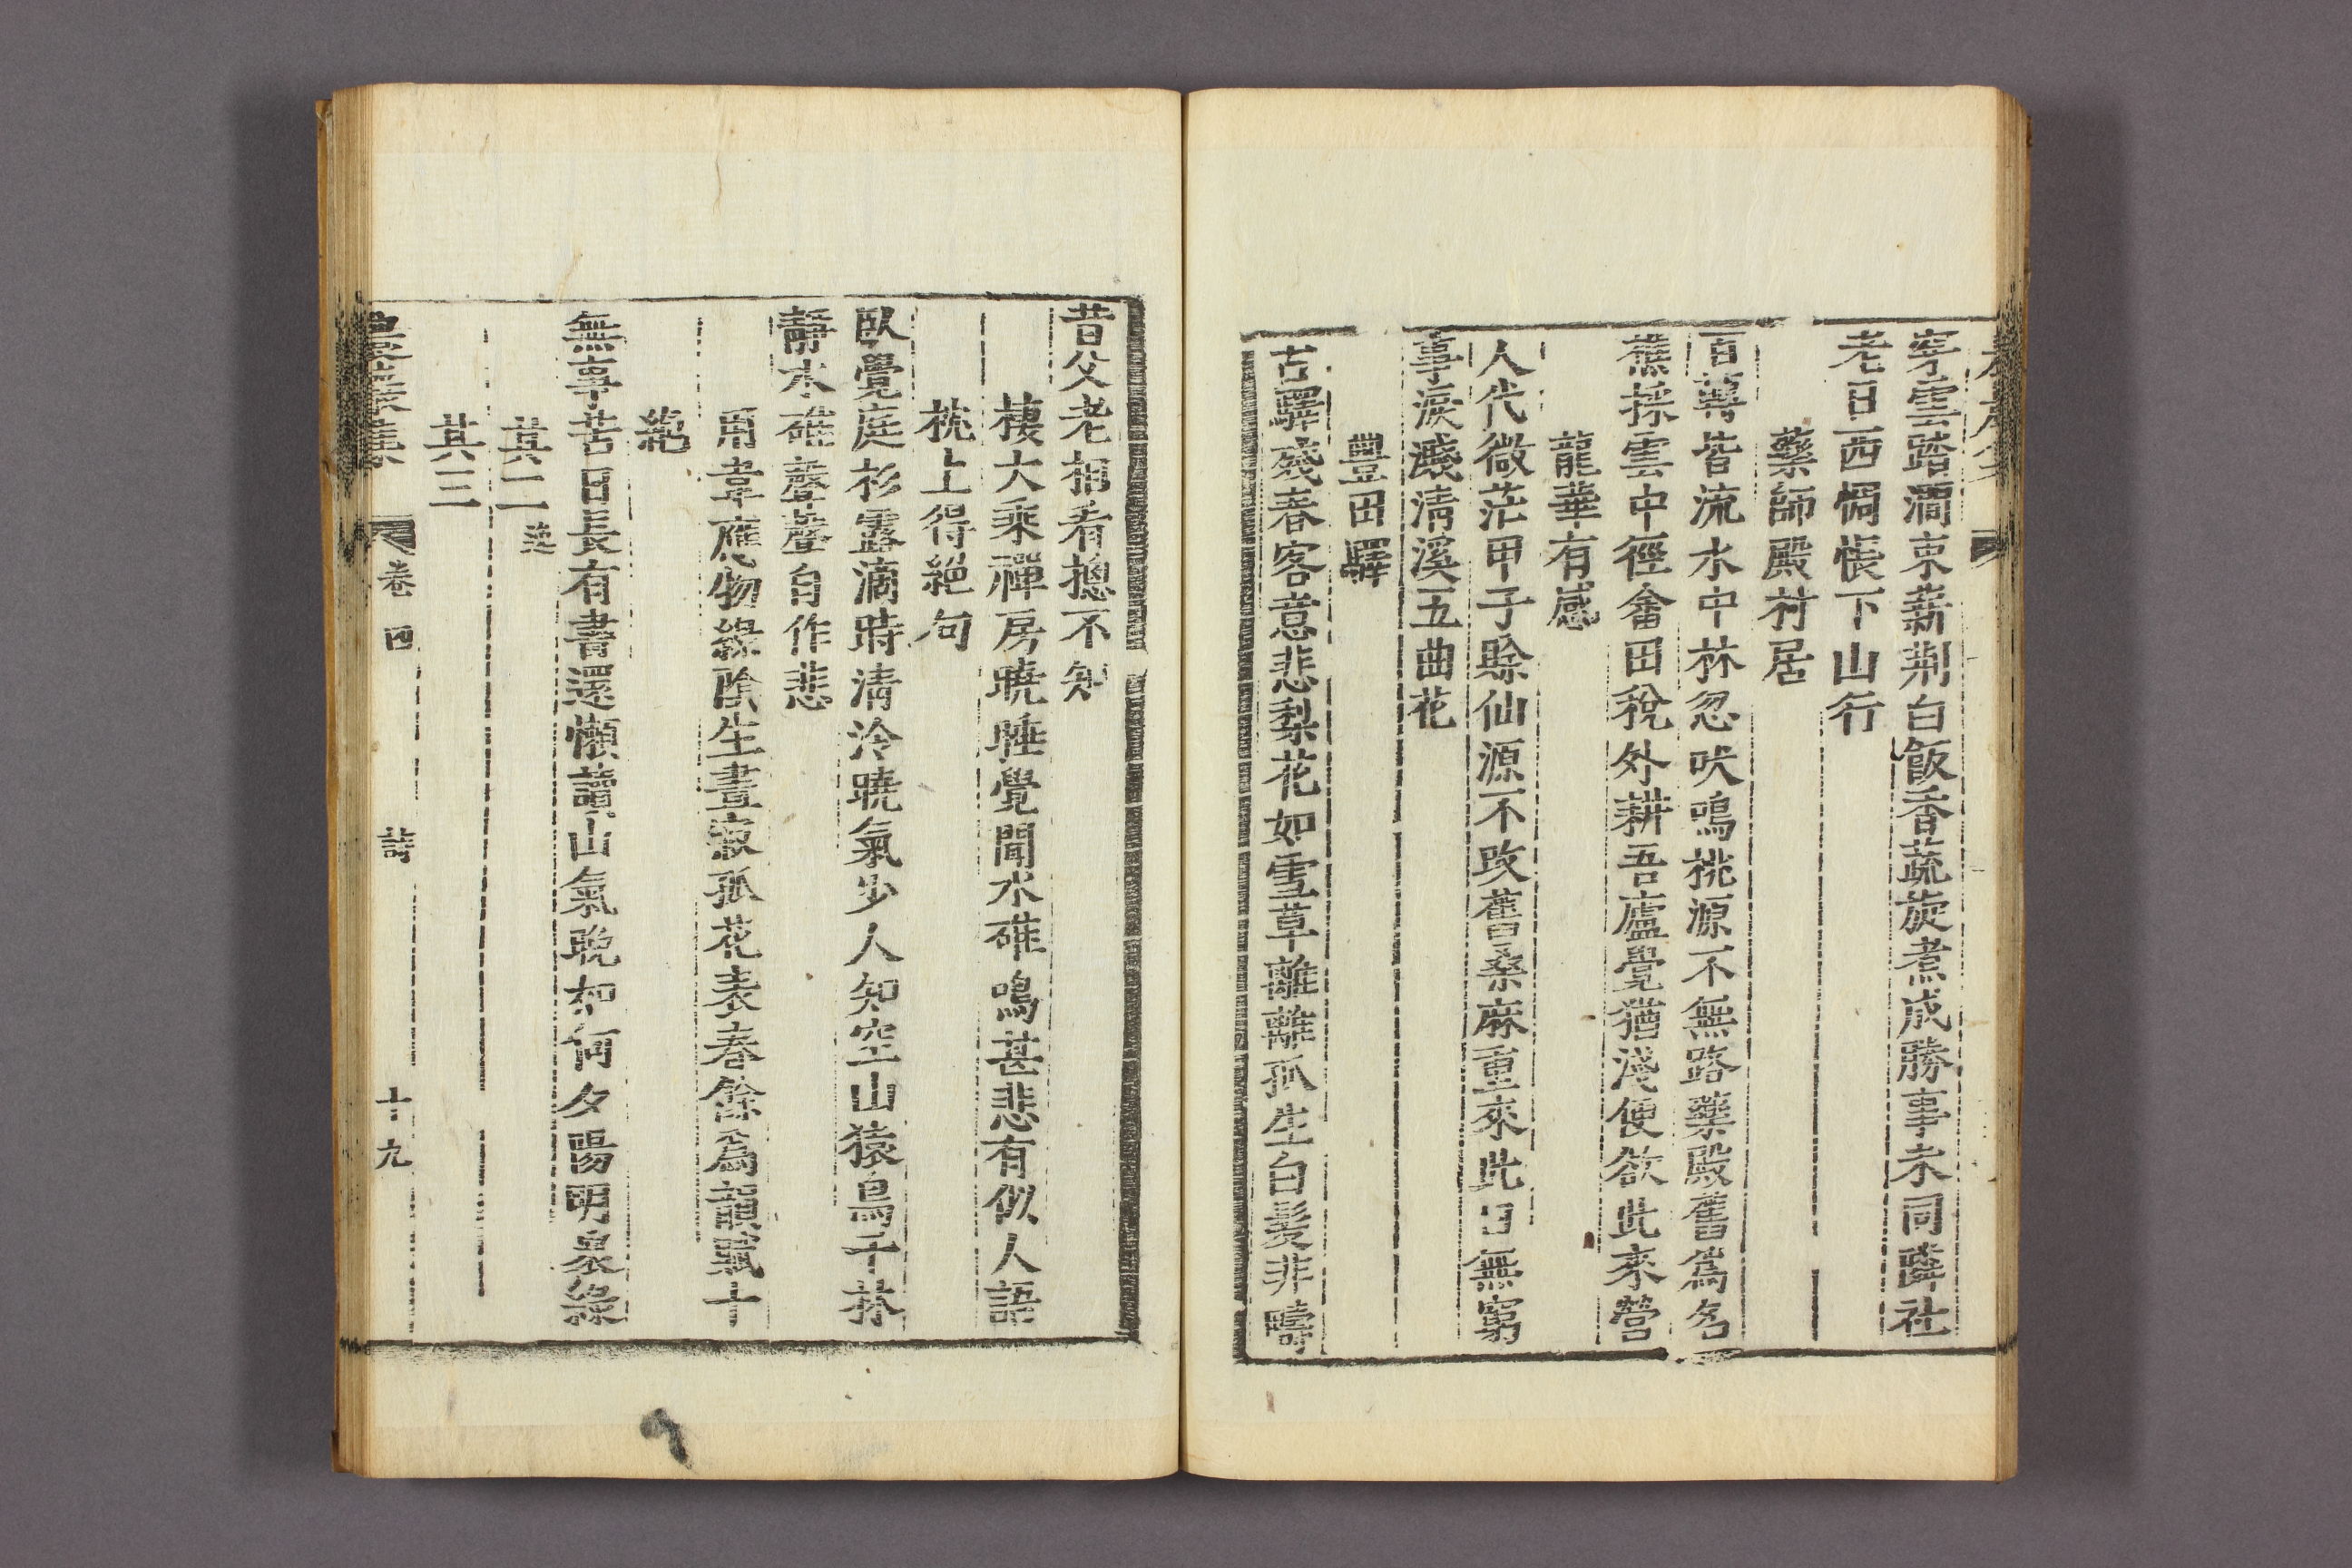 穿雲踏澗束薪荊白飯香蔬旋煮成勝事未同隣社
老日西惆悵下山行
藥師殿村居
百萼皆流水中林忽吠鳴桃源不無路藥殿舊爲名
蕉採雲中徑畬田稅外耕吾廬覺猶淺便欲此來營
龍華有感
人代微茫甲子賖仙源不改舊桑麻重來此日無窮
事淚濺淸溪五曲花
豐田驛
古驛殘春客意悲梨花如雪草離離孤生白髮非疇
昔父老相看摠不知
棲大乘禪房曉睡覺聞水碓鳴甚悲有似人語
枕上得絕句
臥覺庭衫露滴時淸泠曉氣少人知空山猿鳥千林
靜水碓聲聲自作悲
用韋應物綠陰生晝寂孤花表春餘爲韻賦十
絶
無事苦日長有書還懶讀山氣晩如何夕陽明衆綠
其二
其三
卷四
詩
十九